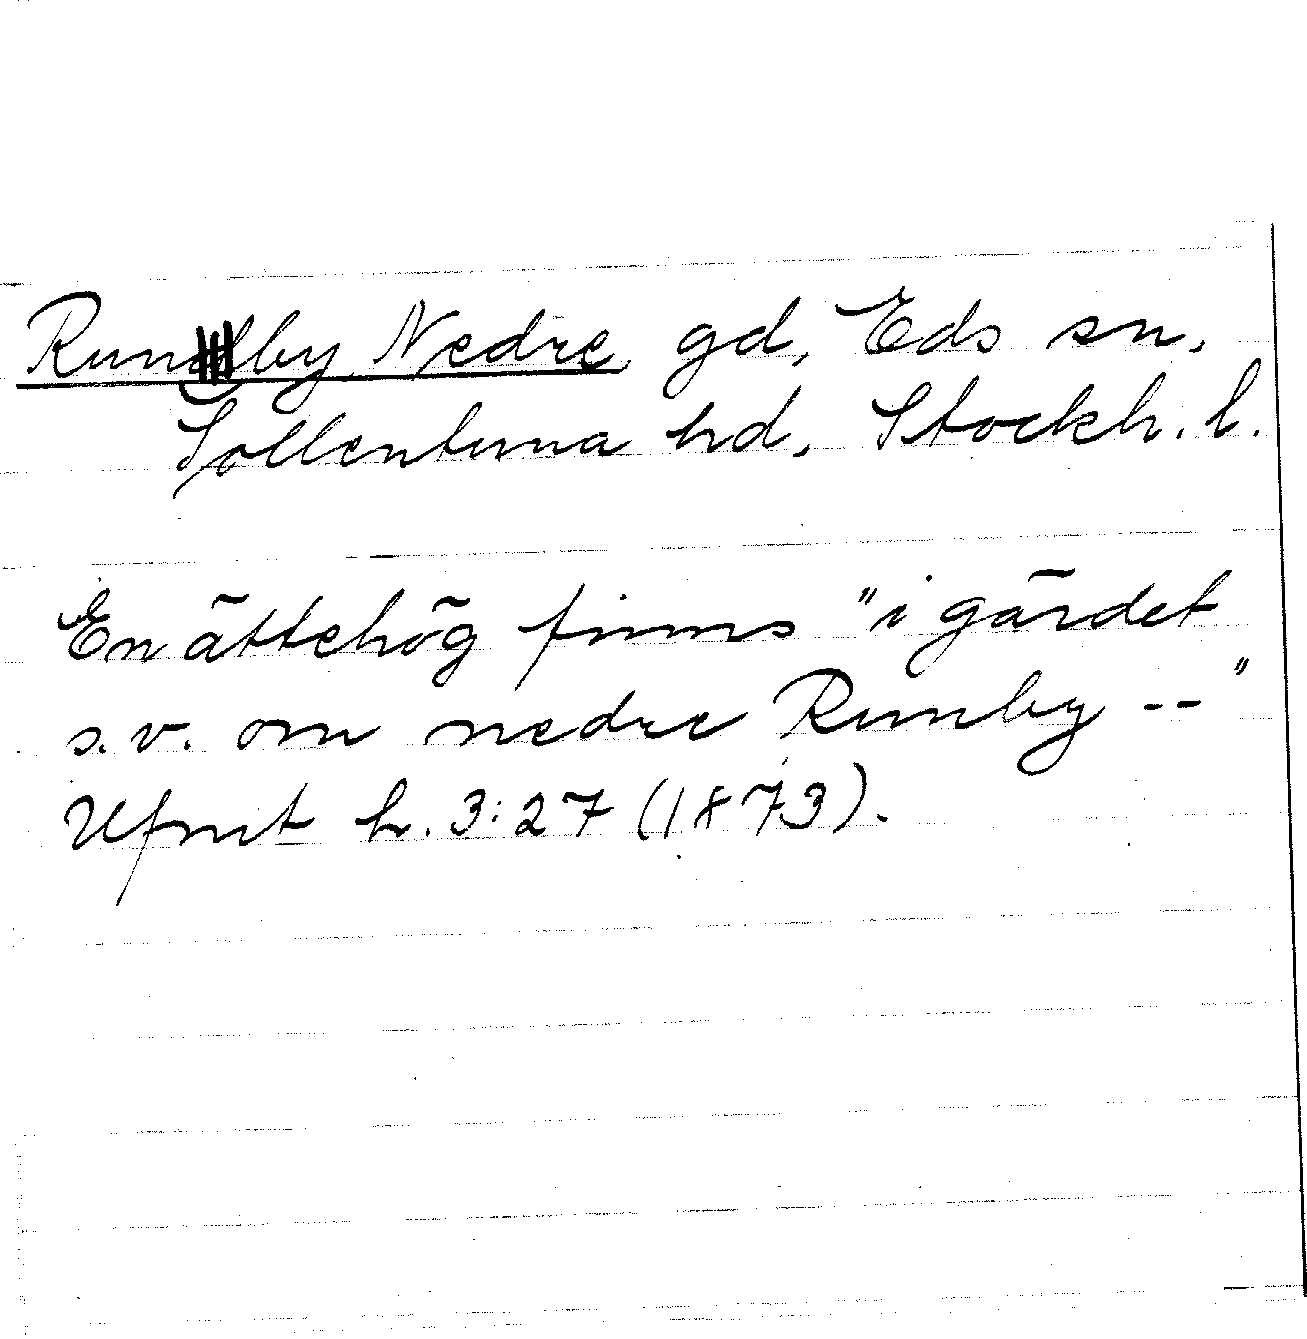 Runby Nedre gd, Eds sn,
Sollentuna hd, Stockh. l.
En ättehög finns "i gärdet
s.v. om nedre Runby --"
Ufmt h. 3:27 (1873).